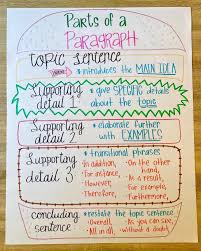 Parts of a
Paragraph
topic sentence
• introduces the MAIN IDEA
Supporting
detail 1
• give SPECIFIC details
about the topic
Supporting
detail 2
• elaborate further
with EXAMPLES
Supporting
detail 3
• transitional phrases
In addition,
For instance,
However,
Therefore,
On the other
hand,
As a result,
For example,
Furthermore,
concluding
sentence
• restate the topic sentence
Overall,
All in all,
As you can see,
without a doubt,